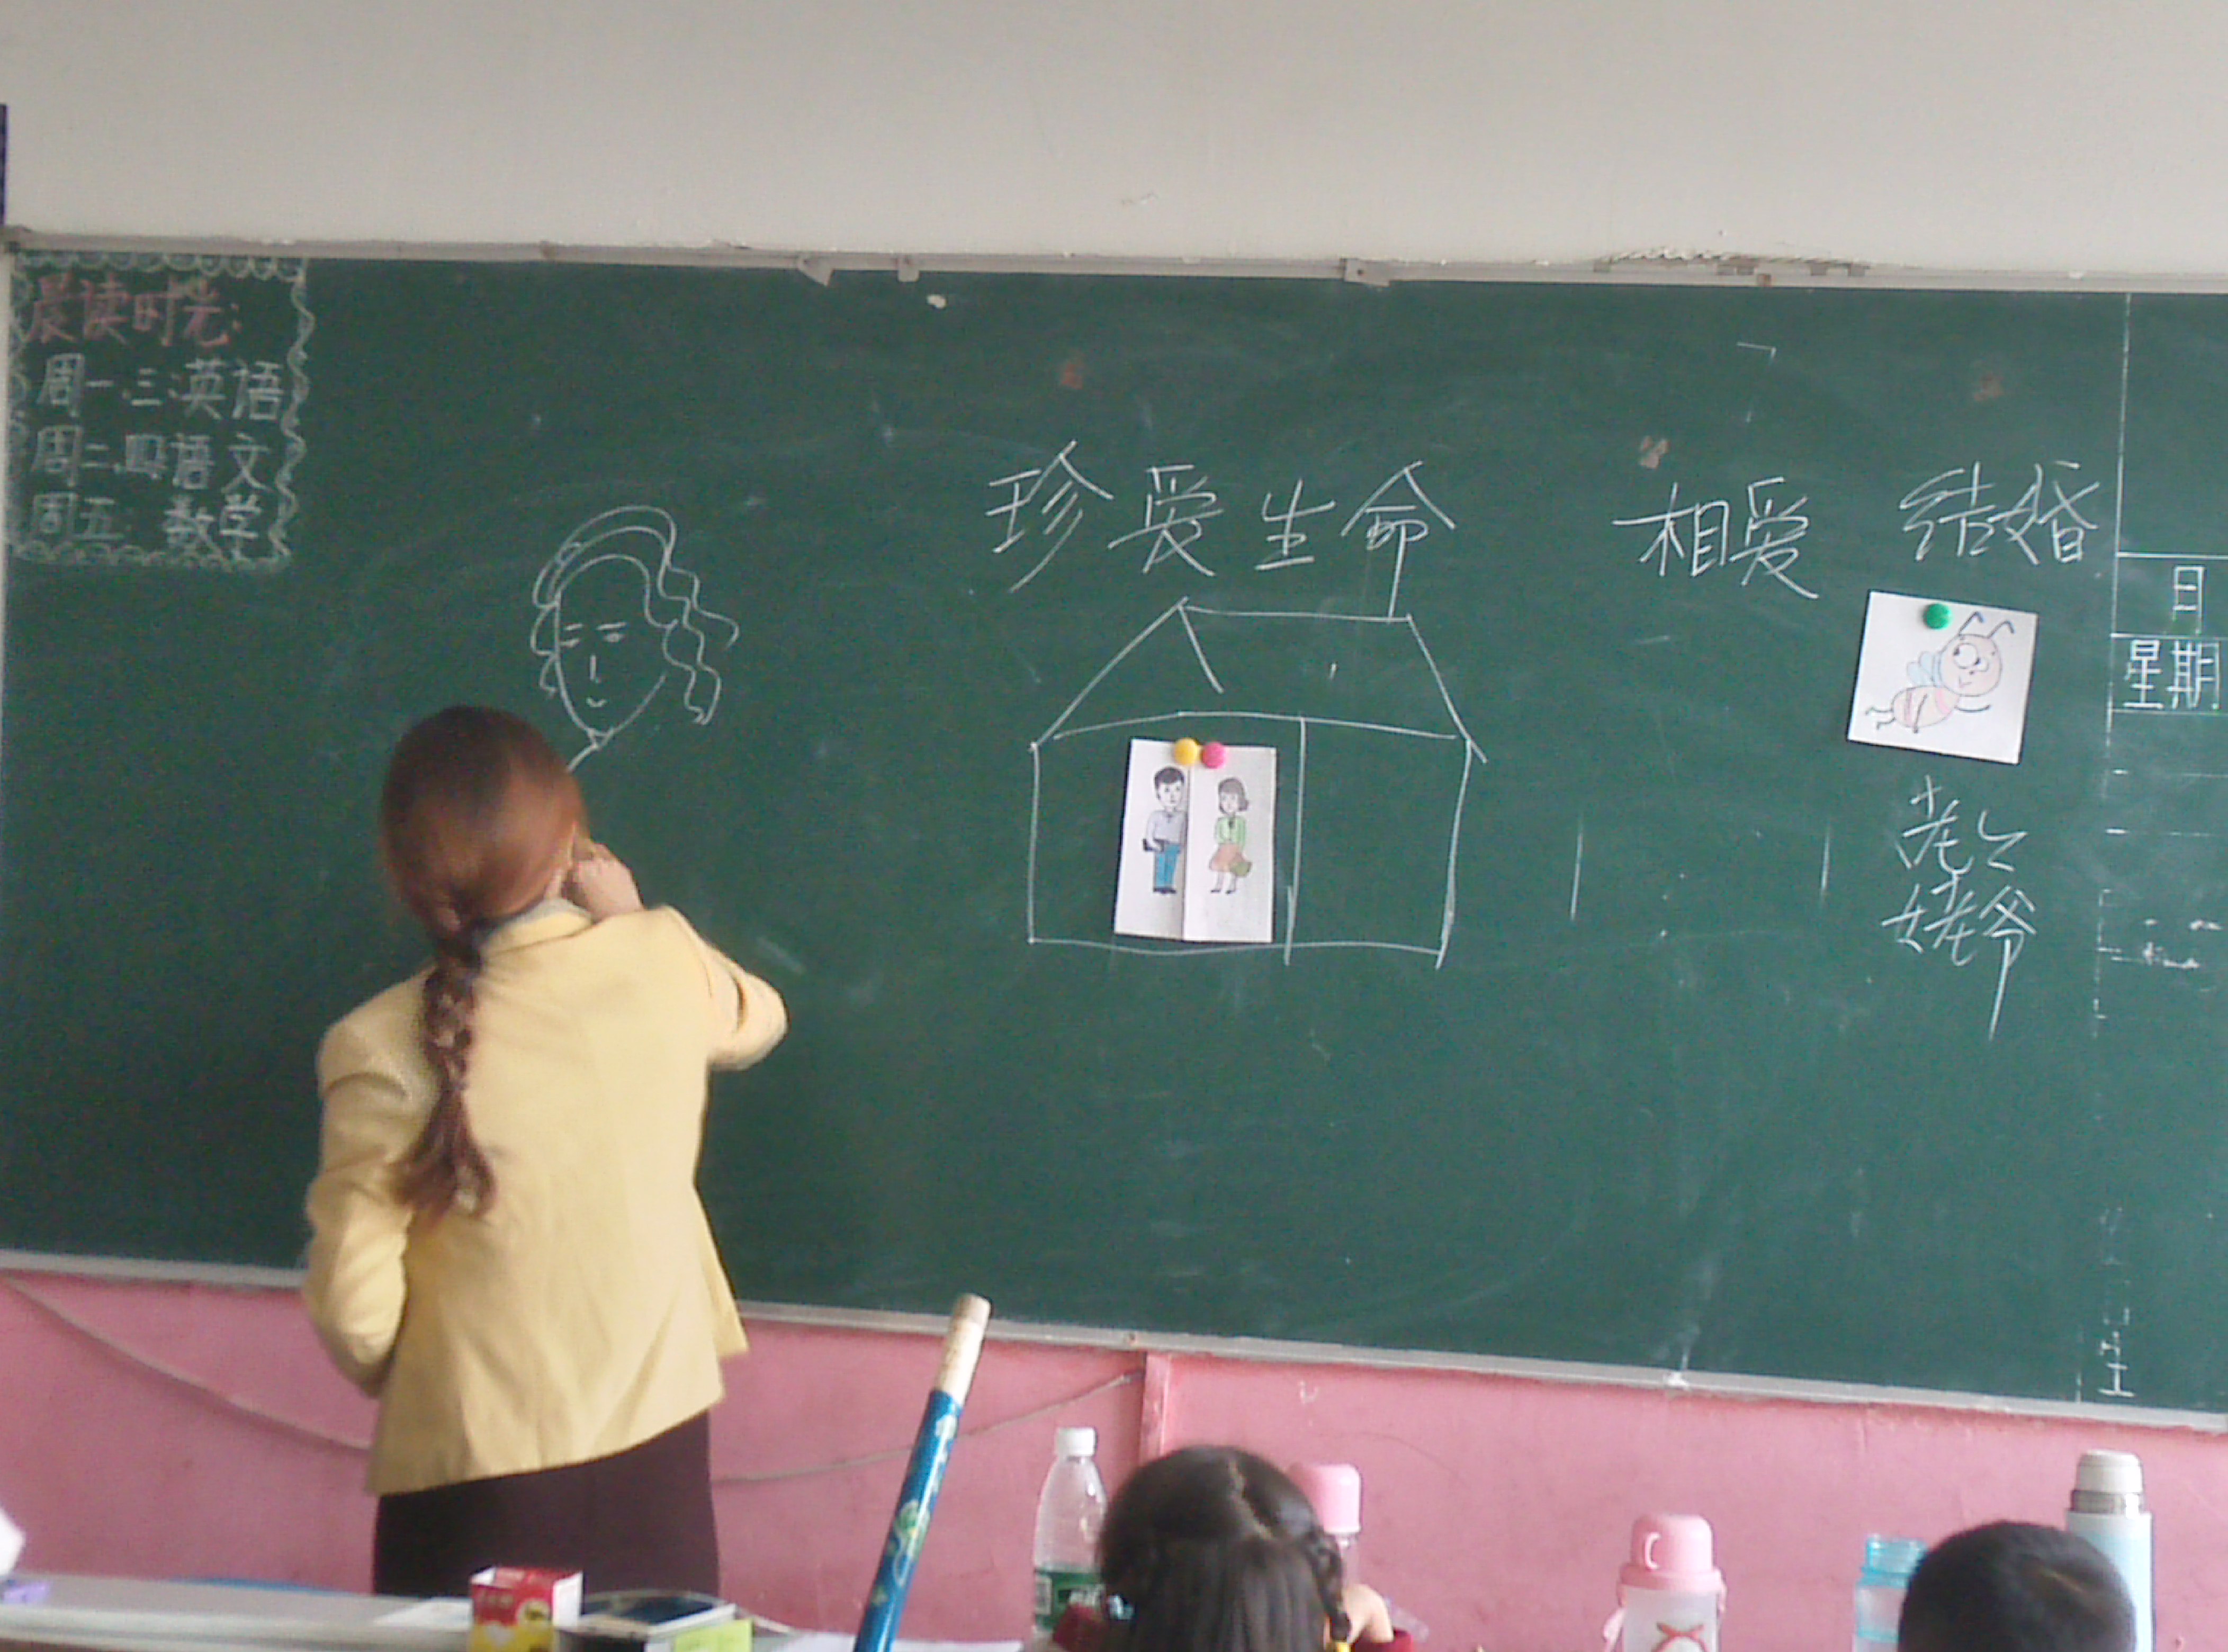 晨读时光:
周一.三:英语
周二.四:语文
周五: 数学
珍爱生命
相爱 结婚
日
星期
姥爷